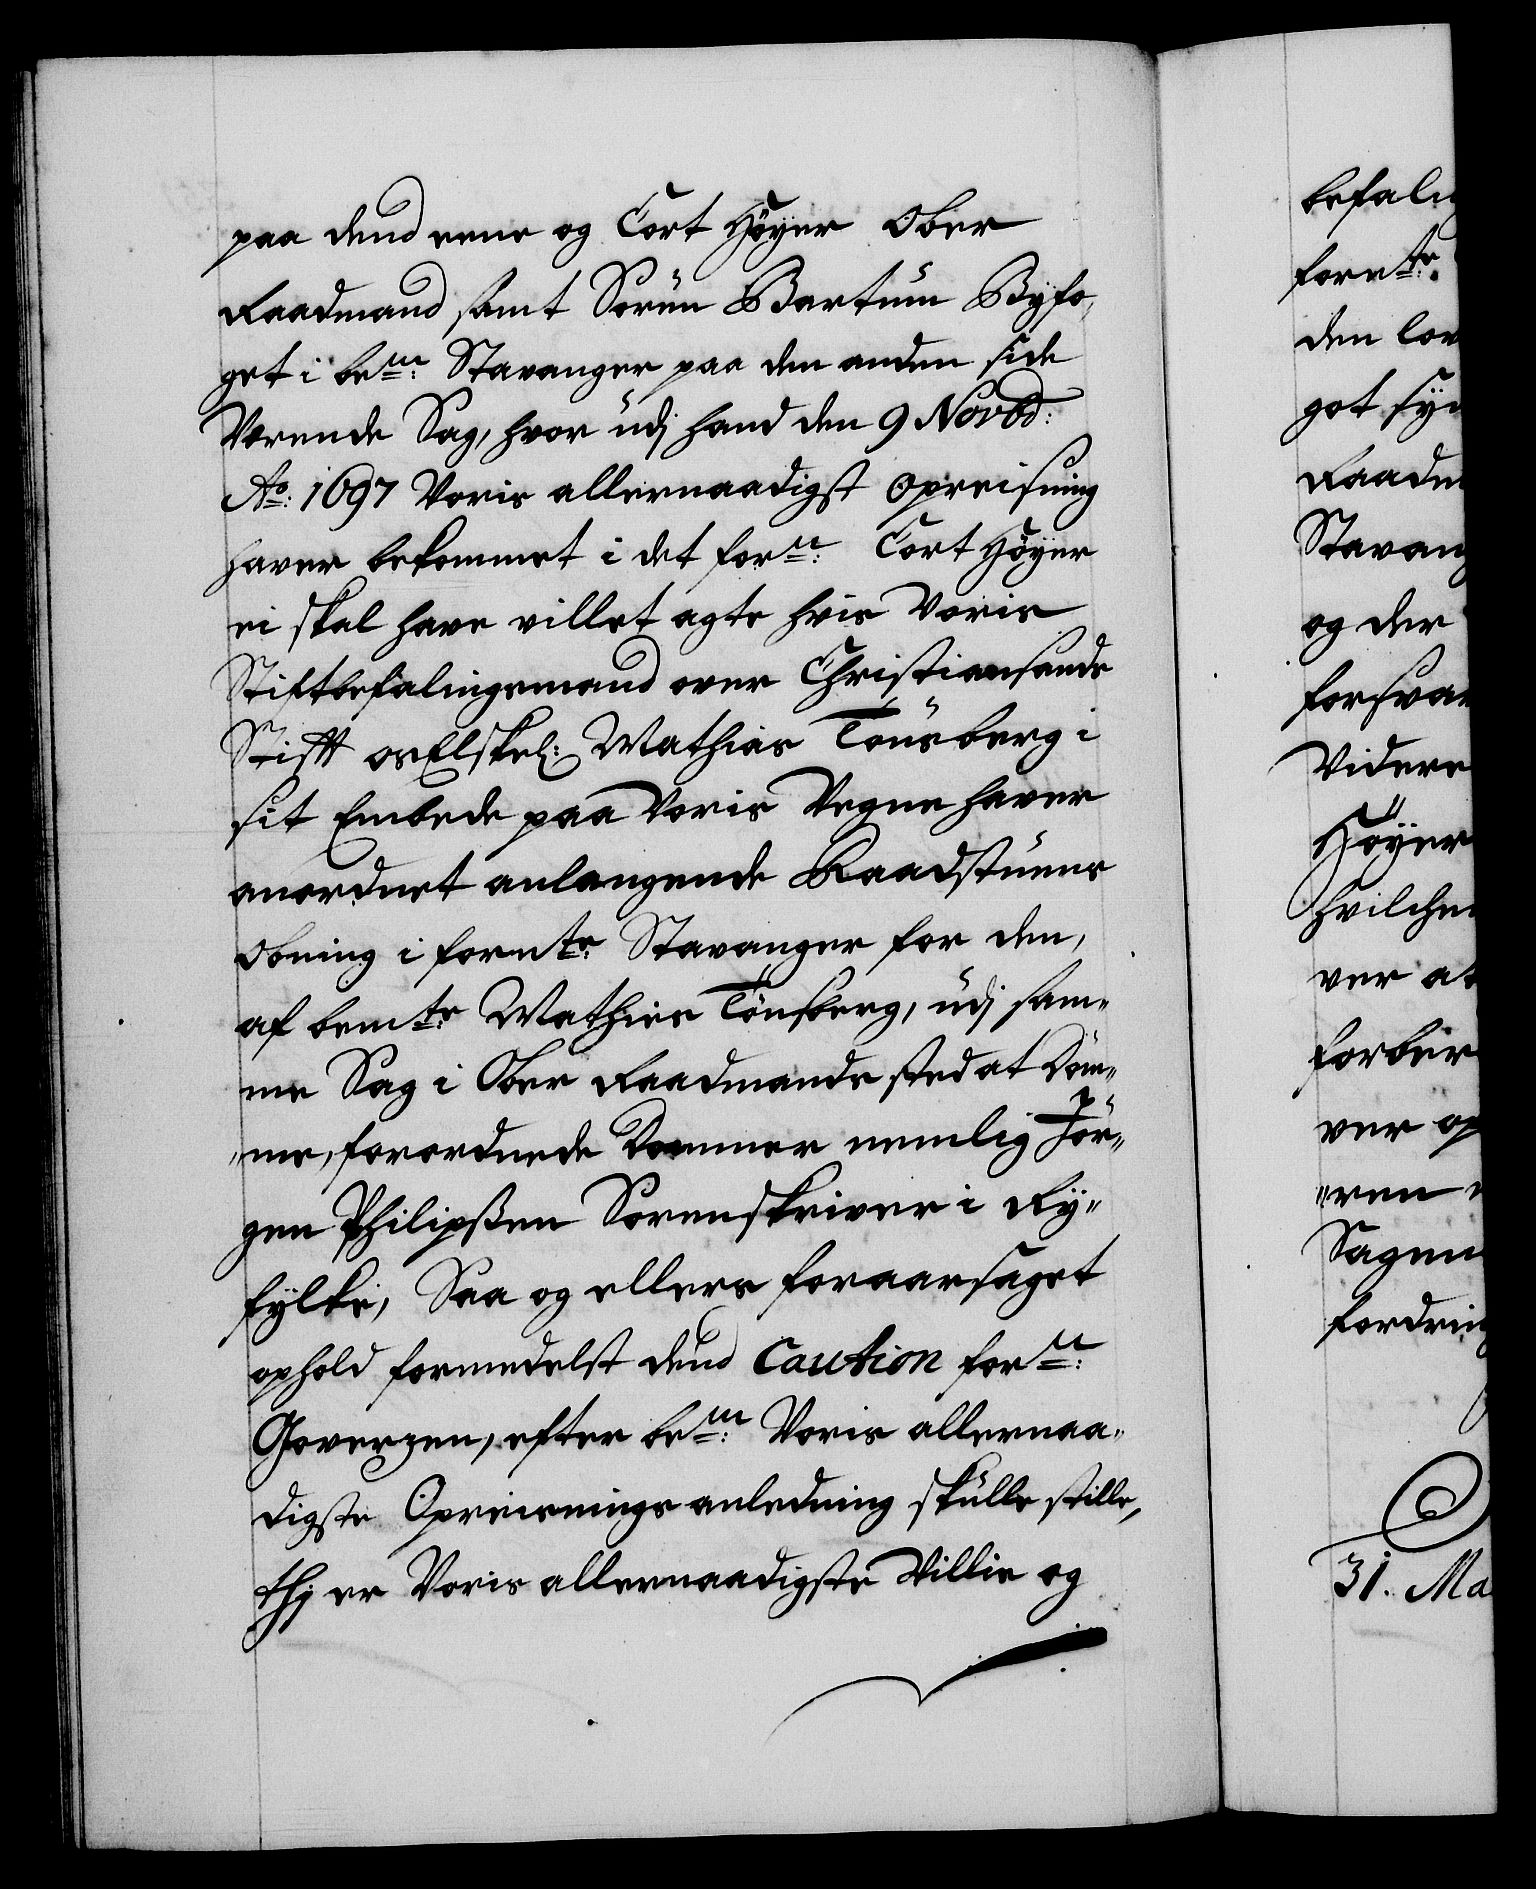 paa dend eene og Cort Höyer Ober
Raadmand samt Sorün Bartüm Byfo,
get i bem: Stavanger paa den anden side
Verende Sag, hvor üdj hand den 9 Novbd:
Ao: 1697 Voris allernaadigst opreisning
haver bekommet i det forn: Cort Höyer
ei skal have villet agte hvis Voris
Stiftbefalingsmand over Christiansands
Stifft os Elskel: Mathias Tönsberg i
sit Embede paa Voris Vegne haver
anordnet anlangende Raadstüens
obning i fornte Stavanger for den,
af bemte Mathies Tönsberg, üdj sam-
me Sag i Ober Raadmands sted at Döm-
"me, forordnede Dommer nemlig Jör-
gen Philipßen Sorenskriver i Ry-
fylke, Saa og ellers foraarsaget
ophold formedelst dend Caution forn:
Goverzen, efter bem: Voris allernaa-
digste Opreisnings anledning skülle stille,
thj er Voris allernaadigste Villie og
befalin
fornte
den lov
got sy
Raadm
Stavang
og der
forsvar
Videre
Höyer
hvilchen
ver at
forbe
ver op
"ren
Sagen
fordring
31. Ma